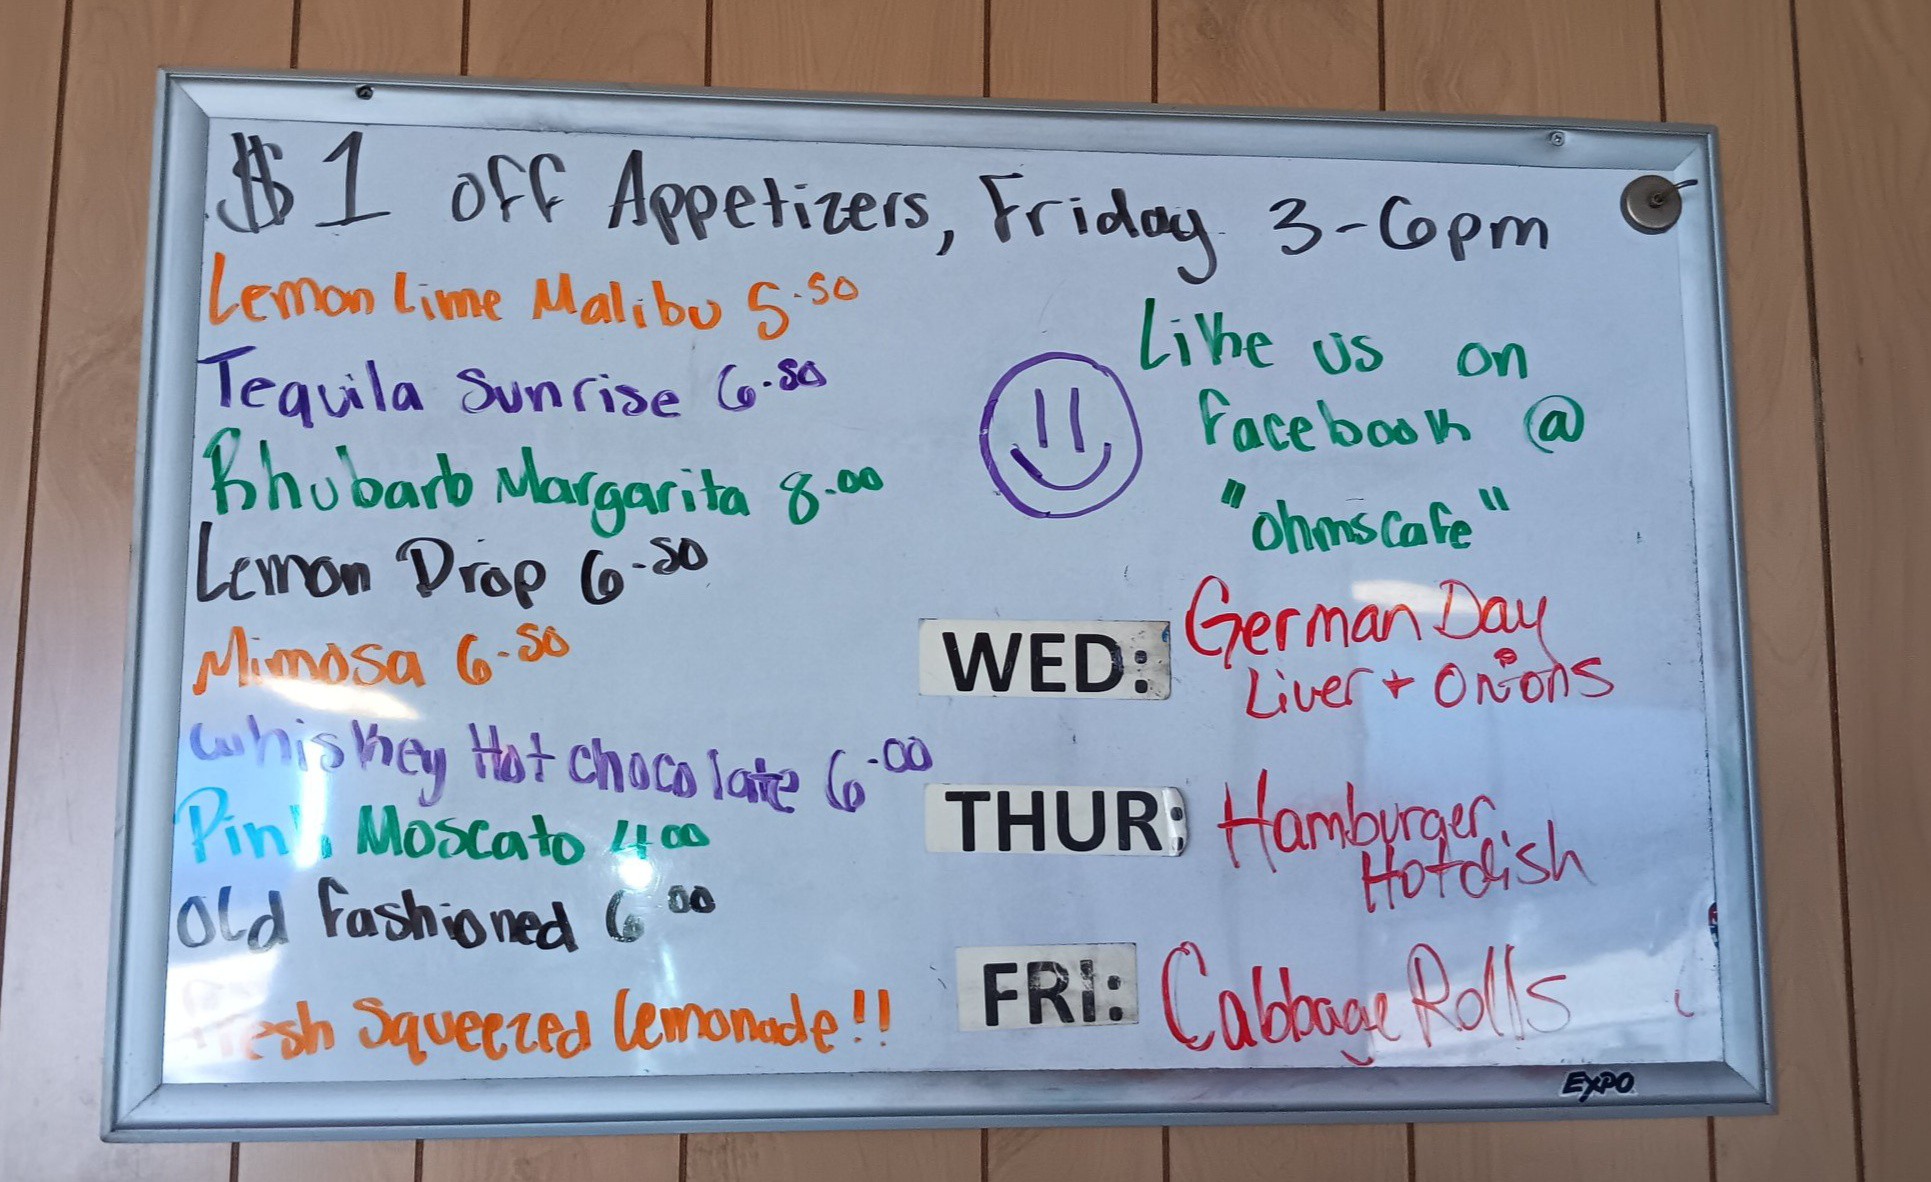 $1 off Appetizers, Friday 3-6pm
Lemon Lime Malibu 5.50
Tequila Sunrise 6.50
Rhubarb Margarita 8.00
Lemon Drop 6.50
Mimosa 6.50
Whiskey Hot Chocolate 6.00
Pink Moscato 4 00
Old Fashioned 6 00
Fresh Squeezed Lemonade!!
Like us on
Facebook @
"ohmscafe"
WED: German Day
Liver + Onions
THUR: Hamburger
Hotdish
FRI: Cabbage Rolls
EXPO